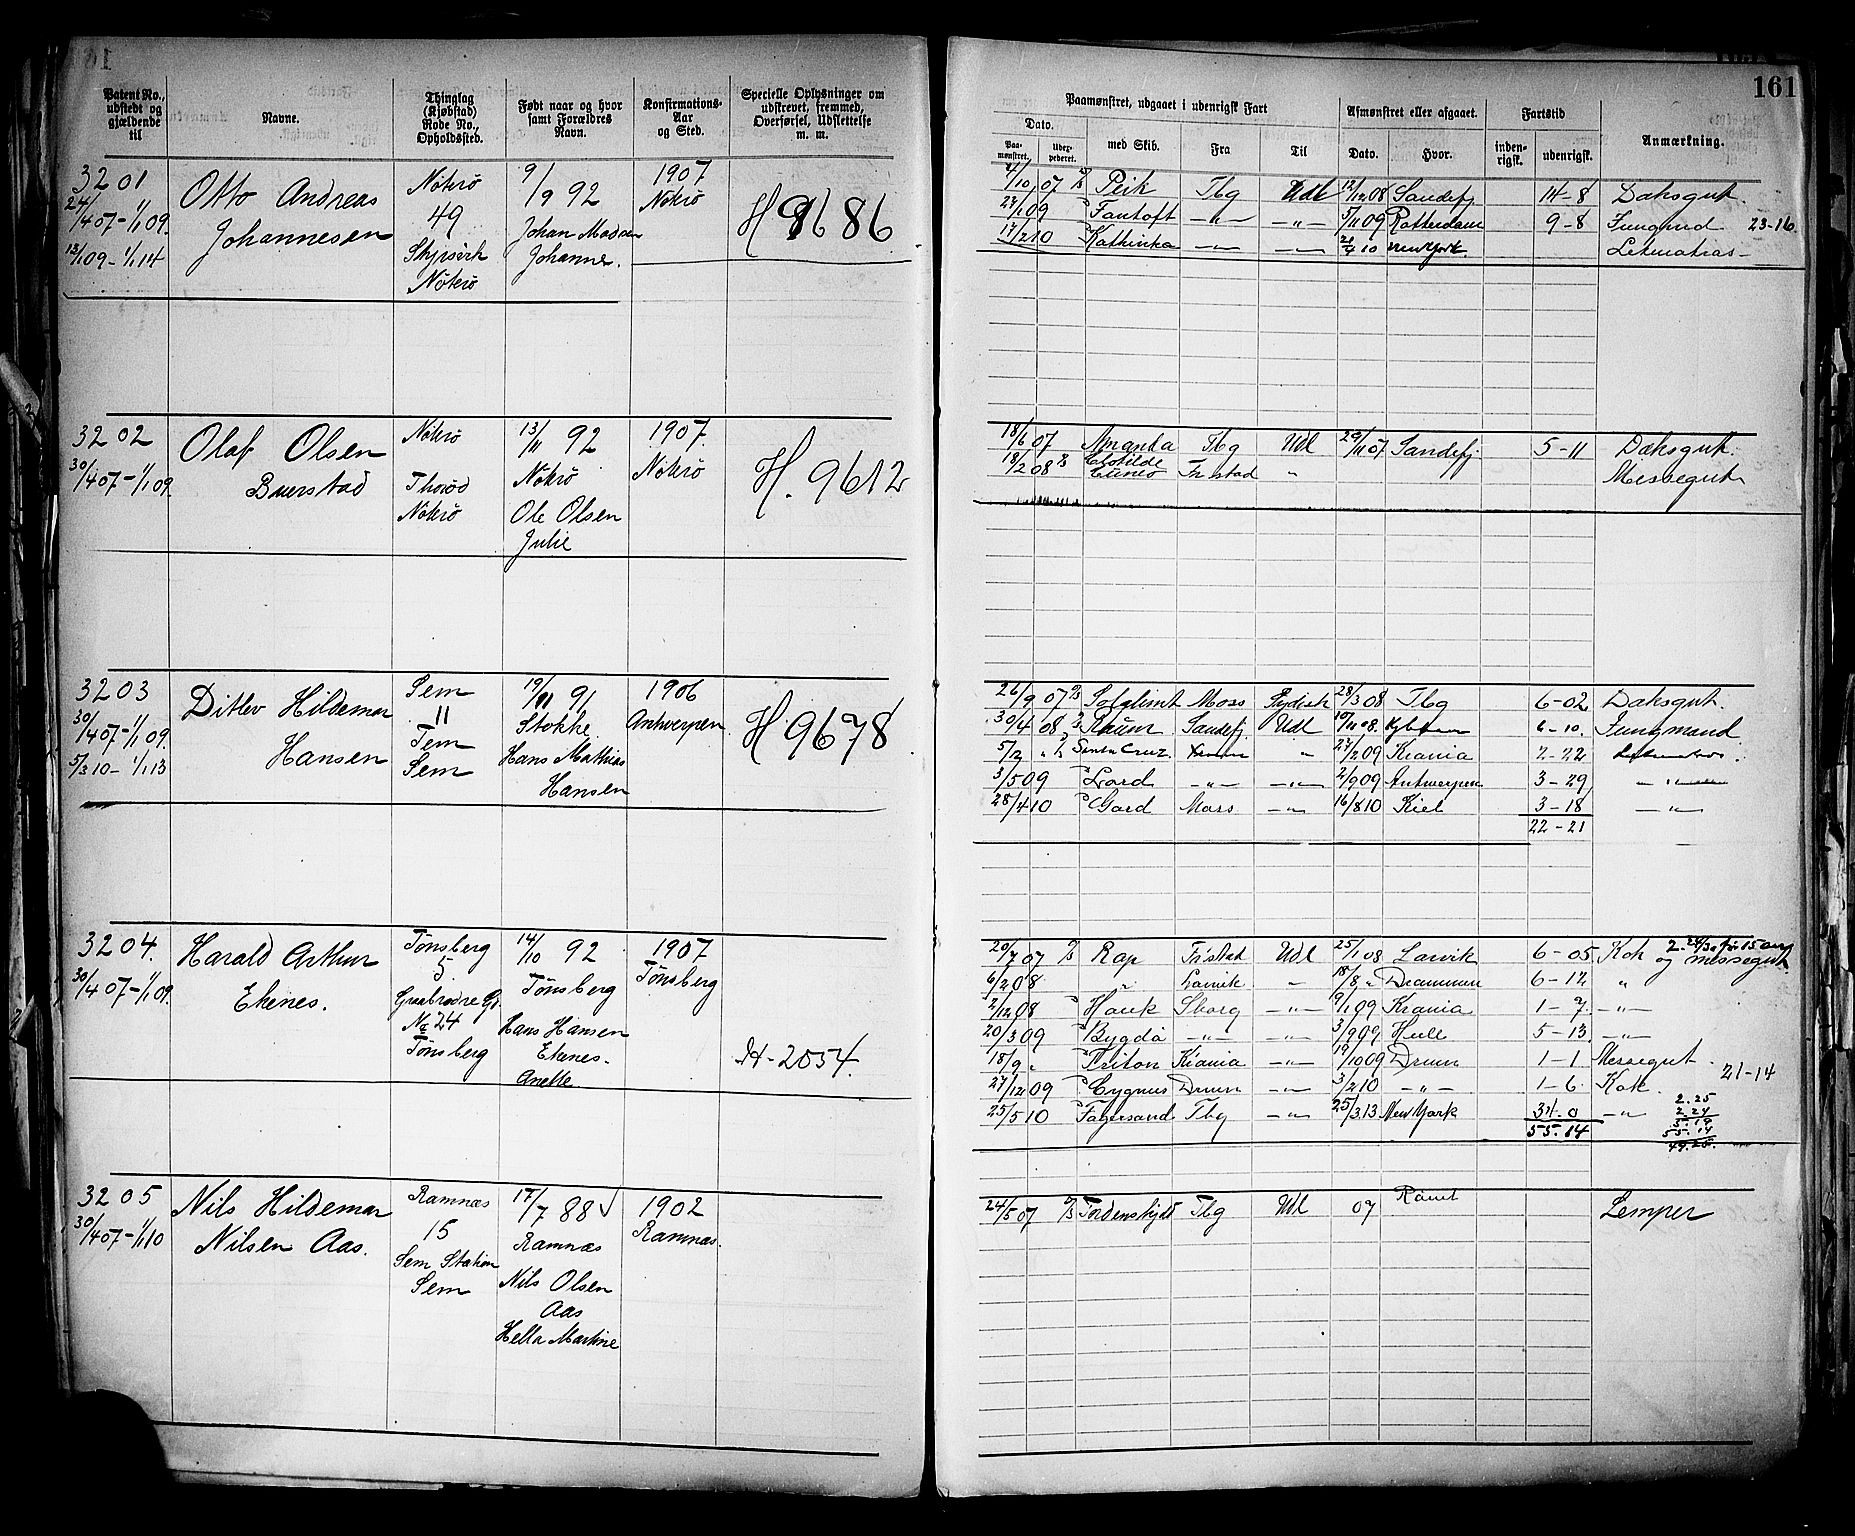 161
Patent No., udstedt og gjældende til
Navne.
Thinglag (Kjøbstad) Rode No., Opholdssted.
Født naar og hvor samt Forældres Navn.
Konfirmations-Aar og Sted.
Specielle Oplysninger om udskrevet, fremmed, Overførsel, Udslettelse m. m.
Paamønstret, udgaaet i udenrigsk Fart
Dato.
Paa-mønstret.
Udex-pederet.
med Skib.
Fra
Til
Afmønstret eller afgaaet.
Dato.
Hvor.
Fartstid
inden-rigsk.
udenrigsk.
Anmærkning.
3201
24/4 07-1/1 09.
13/1 09-1/1 14
Otto Andreas
Johannesen
Nøterø
49
Nøterø
9/9 92
Johan Madsen
Johanne.
1907
Nøterø
H 9686
4/10 07 Peik Tbg Udl 12/12 08 Sandefj 14-8 Daksgut.
27/1 09 Fantoft -"- -"- 5/11 09 Rotterdam 9-8 Jungmd 23-16.
17/2 10 Kathinka -"- -"- 21/4 10 New York. Letmatros-
3202
30/4 07-1/1 09
Olaf Olsen
Buerstad
Nøterø
Thorød
Nøterø
13/11 92
Nøterø
Ole Olsen
Julie
1907.
Nøterø
H. 9612
18/6 07 Amanda Tbg Udl 29/11 07 Sandefj. 5-11 Daksgut.
18/2 08 Clotilde Cuneo Frstad " Messegut
3203
30/4 07-1/1 09.
5/3 10-1/1 13
Ditlev Hildemar
Hansen
Sem
11
Tem
Sem
19/11 91
Stokke
Hans Mathias
Hansen
1906
Antwerpen
H 9678
26/9 07 Moss Sydisk 28/3 08 Tbg 6-02 Daksgut.
30/4 08 Sandefj Udl 10/11 08. 6-10. Jungmand
5/2 " Santa Cruz " 27/2 09 Krania 2-22
3/5 09 Lord -"- -"- 2/9 09 Antwerpen 3-29 -"-
28/4 10 Gard Moss -"- 16/8 10 Kiel 3-18 -"-
22-21
3204.
30/4 07-1/1 09.
Harald Arthur
Ekenes.
Tønsberg
5.
Graabrødre Gd.
No 24
Tønsberg
14/10 92
Tønsberg
Hans Hansen
Ekenes.
Anette
1907
Tønsberg
H-2054.
20/7 07 Rap Frstad Udl 25/1 08 Larvik 6-05 Kok og messegut
6/2 08 " Larvik " 18/8 " Drammen 6-12 "
2/12 08 Hauk Sborg -"- 9/1 09 Krania 1-7. -"-
20/3 09 Bygdø -"- -"- 3/9 09 Hull 5-13. -"-
18/9 " Triton Krania -"- 19/10 09 Drmn 1-1 Messegut.
21-14
27/12 09 Cygnus Drmn -"- 3/2 10 -"- 1-6. Kok.
25/5 10 Fagersand Tbg -"- 25/3 13 New York 34.0 -"-
55.14
2.25
2.24
5.19
55.14
49.25.
3205
30/4 07-1/1 10
Nils Hildemar
Nilsen Aas.
Ramnæs
15
Sem Station
Sem
17/7 88
Ramnæs
Nils Olsen
Aas
Hella Martine
1902
Ramnæs.
24/5 07 Tordenskjold Tbg Udl 07 Rømt Lemper